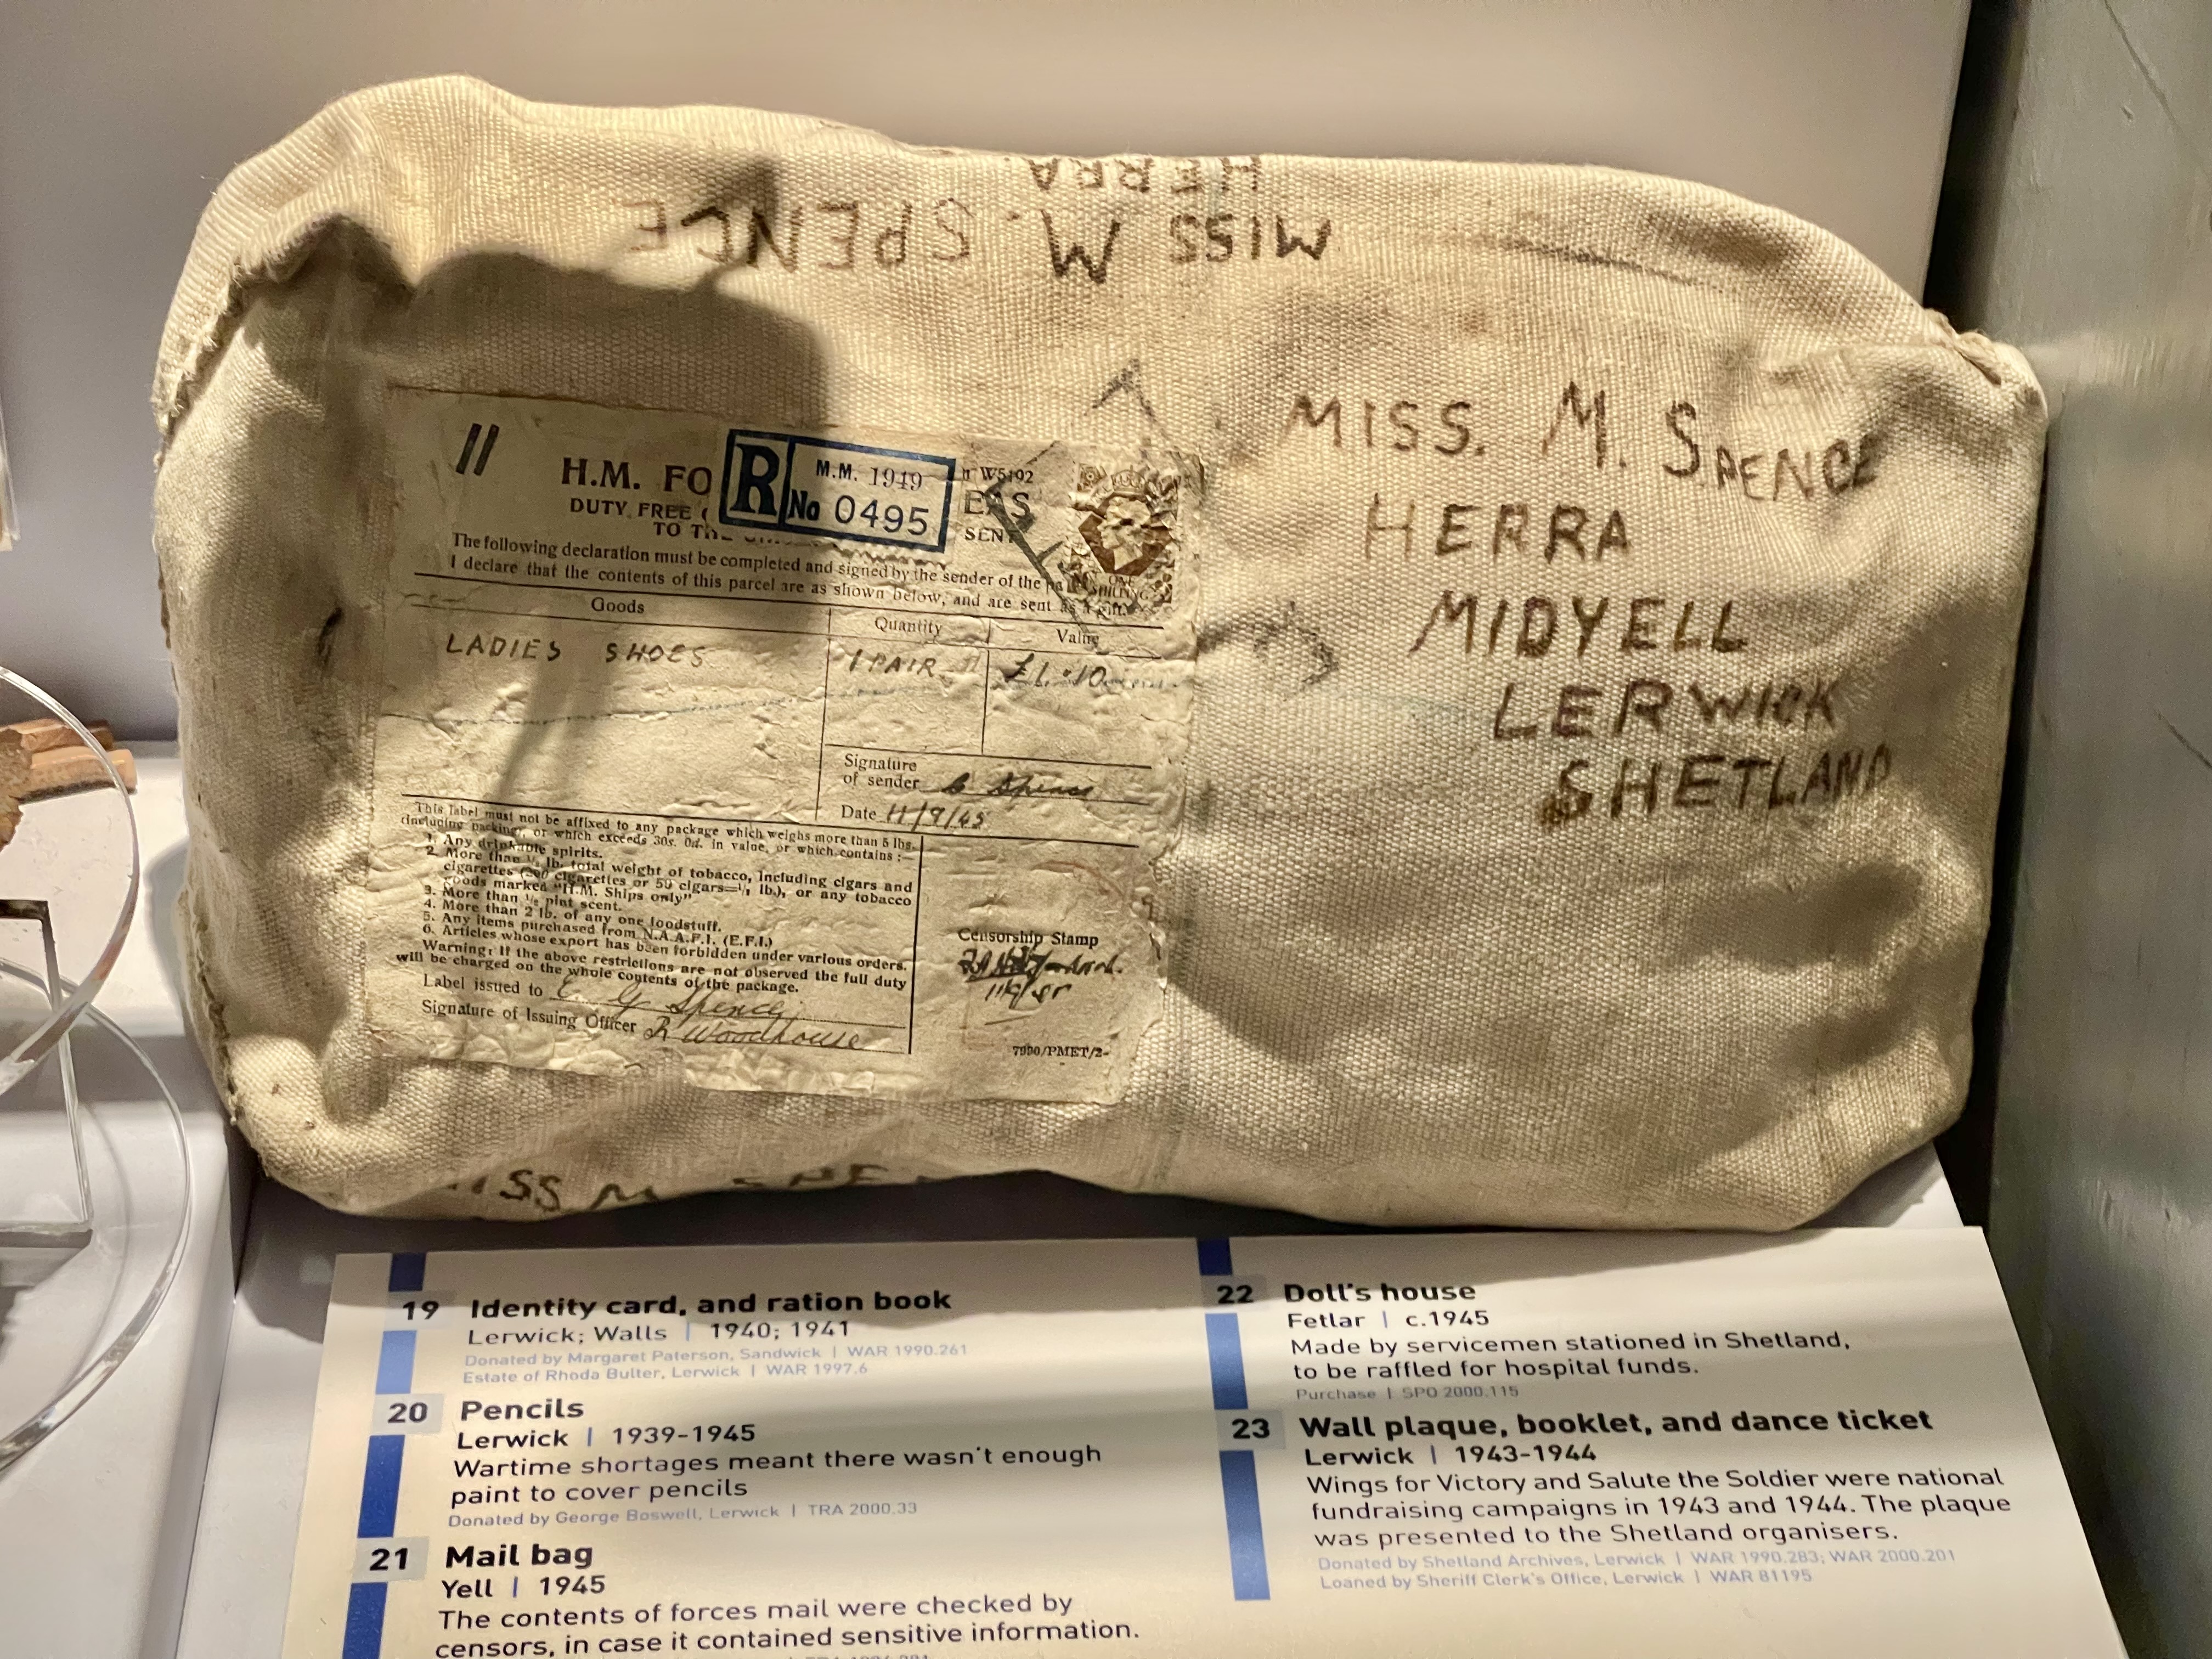 HERRA
MISS M. SPENCE
MISS. M. SPENCE
HERRA
MIDYELL
LERWICK
SHETLAND
H.M. FO
R
M.M. 1949
No 0495
W5192
EAS
DUTY FREE
SENT
TO
The following declaration must be completed and signed by the sender of the
I declare that the contents of this parcel are as shown below, and are sent as a gift.
ONE
SHILLING
Goods Quantity Value
LADIES SHOES 1 PAIR £1.-10
Signature
of sender Spence
Date 11/9/45
This label must not be affixed to any package which weighs more than 5 lbs.
(including packing), or which exceeds 30s. 0d. in value, or which contains:—
1. Any drinkable spirits.
2. More than ½ lb. total weight of tobacco, including cigars and
cigarettes (200 cigarettes or 50 cigars=½ lb.), or any tobacco
goods marked "H.M. Ships only"
3. More than ½ pint scent.
4. More than 2 lb. of any one foodstuff.
5. Any items purchased from N.A.A.F.I. (E.F.I.)
6. Articles whose export has been forbidden under various orders.
Warning: If the above restrictions are not observed the full duty
will be charged on the whole contents of the package.
Label issued to Spence
Signature of Issuing Officer R Woodhouse
Censorship Stamp
7990/PMET/2-
ISS M SPE
19 Identity card, and ration book
Lerwick; Walls | 1940; 1941
Donated by Margaret Paterson, Sandwick | WAR 1990.261
Estate of Rhoda Bulter, Lerwick | WAR 1997.6
20 Pencils
Lerwick | 1939-1945
Wartime shortages meant there wasn't enough
paint to cover pencils
Donated by George Boswell, Lerwick | TRA 2000.33
21 Mail bag
Yell | 1945
The contents of forces mail were checked by
censors, in case it contained sensitive information.
22 Doll's house
Fetlar | c.1945
Made by servicemen stationed in Shetland,
to be raffled for hospital funds.
Purchase | SPO 2000.115
23 Wall plaque, booklet, and dance ticket
Lerwick | 1943-1944
Wings for Victory and Salute the Soldier were national
fundraising campaigns in 1943 and 1944. The plaque
was presented to the Shetland organisers.
Donated by Shetland Archives, Lerwick | WAR 1990.283; WAR 2000.201
Loaned by Sheriff Clerk's Office, Lerwick | WAR 81195